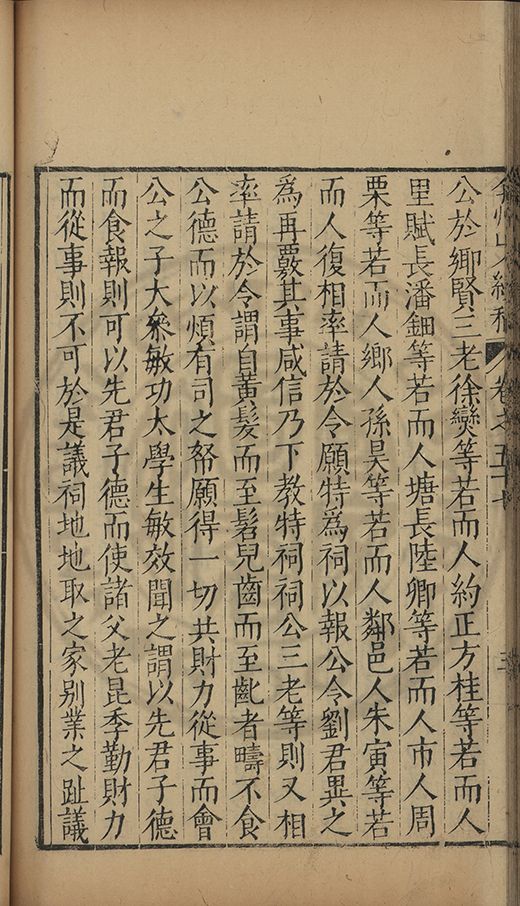 弇州山人續稿 卷之五十七 三
公於鄉賢三老徐爕等若而人約正方桂等若而人
里賦長潘鈿等若而人塘長陸卿等若而人市人周
栗等若而人鄉人孫昊等若而人鄰邑人朱寅等若
而人復相率請於令願特爲祠以報公令劉君異之
爲再覈其事咸信乃下教特祠祠公三老等則又相
率請於令謂自黃髮而至髫兒齒而至齔者疇不食
公德而以煩有司之帑願得一切共財力從事而會
公之子大叅敏功太學生敏效聞之謂以先君子德
而食報則可以先君子德而使諸父老昆季勤財力
而從事則不可於是議祠地地取之家别業之趾議